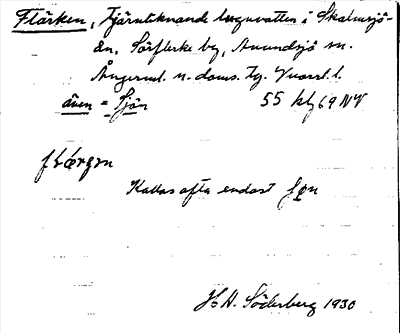 Flärken, Tjärnliknande lugnvatten i Skalmsjö-
ån, Sörflärke by, Anundsjö sn.
Ångerml. n. doms. Tg. Vnorrl. l.
även = Sjön 55 kbl 69 NV
flærgɔn
Kallas ofta endast ʃøn
H. Söderberg 1930